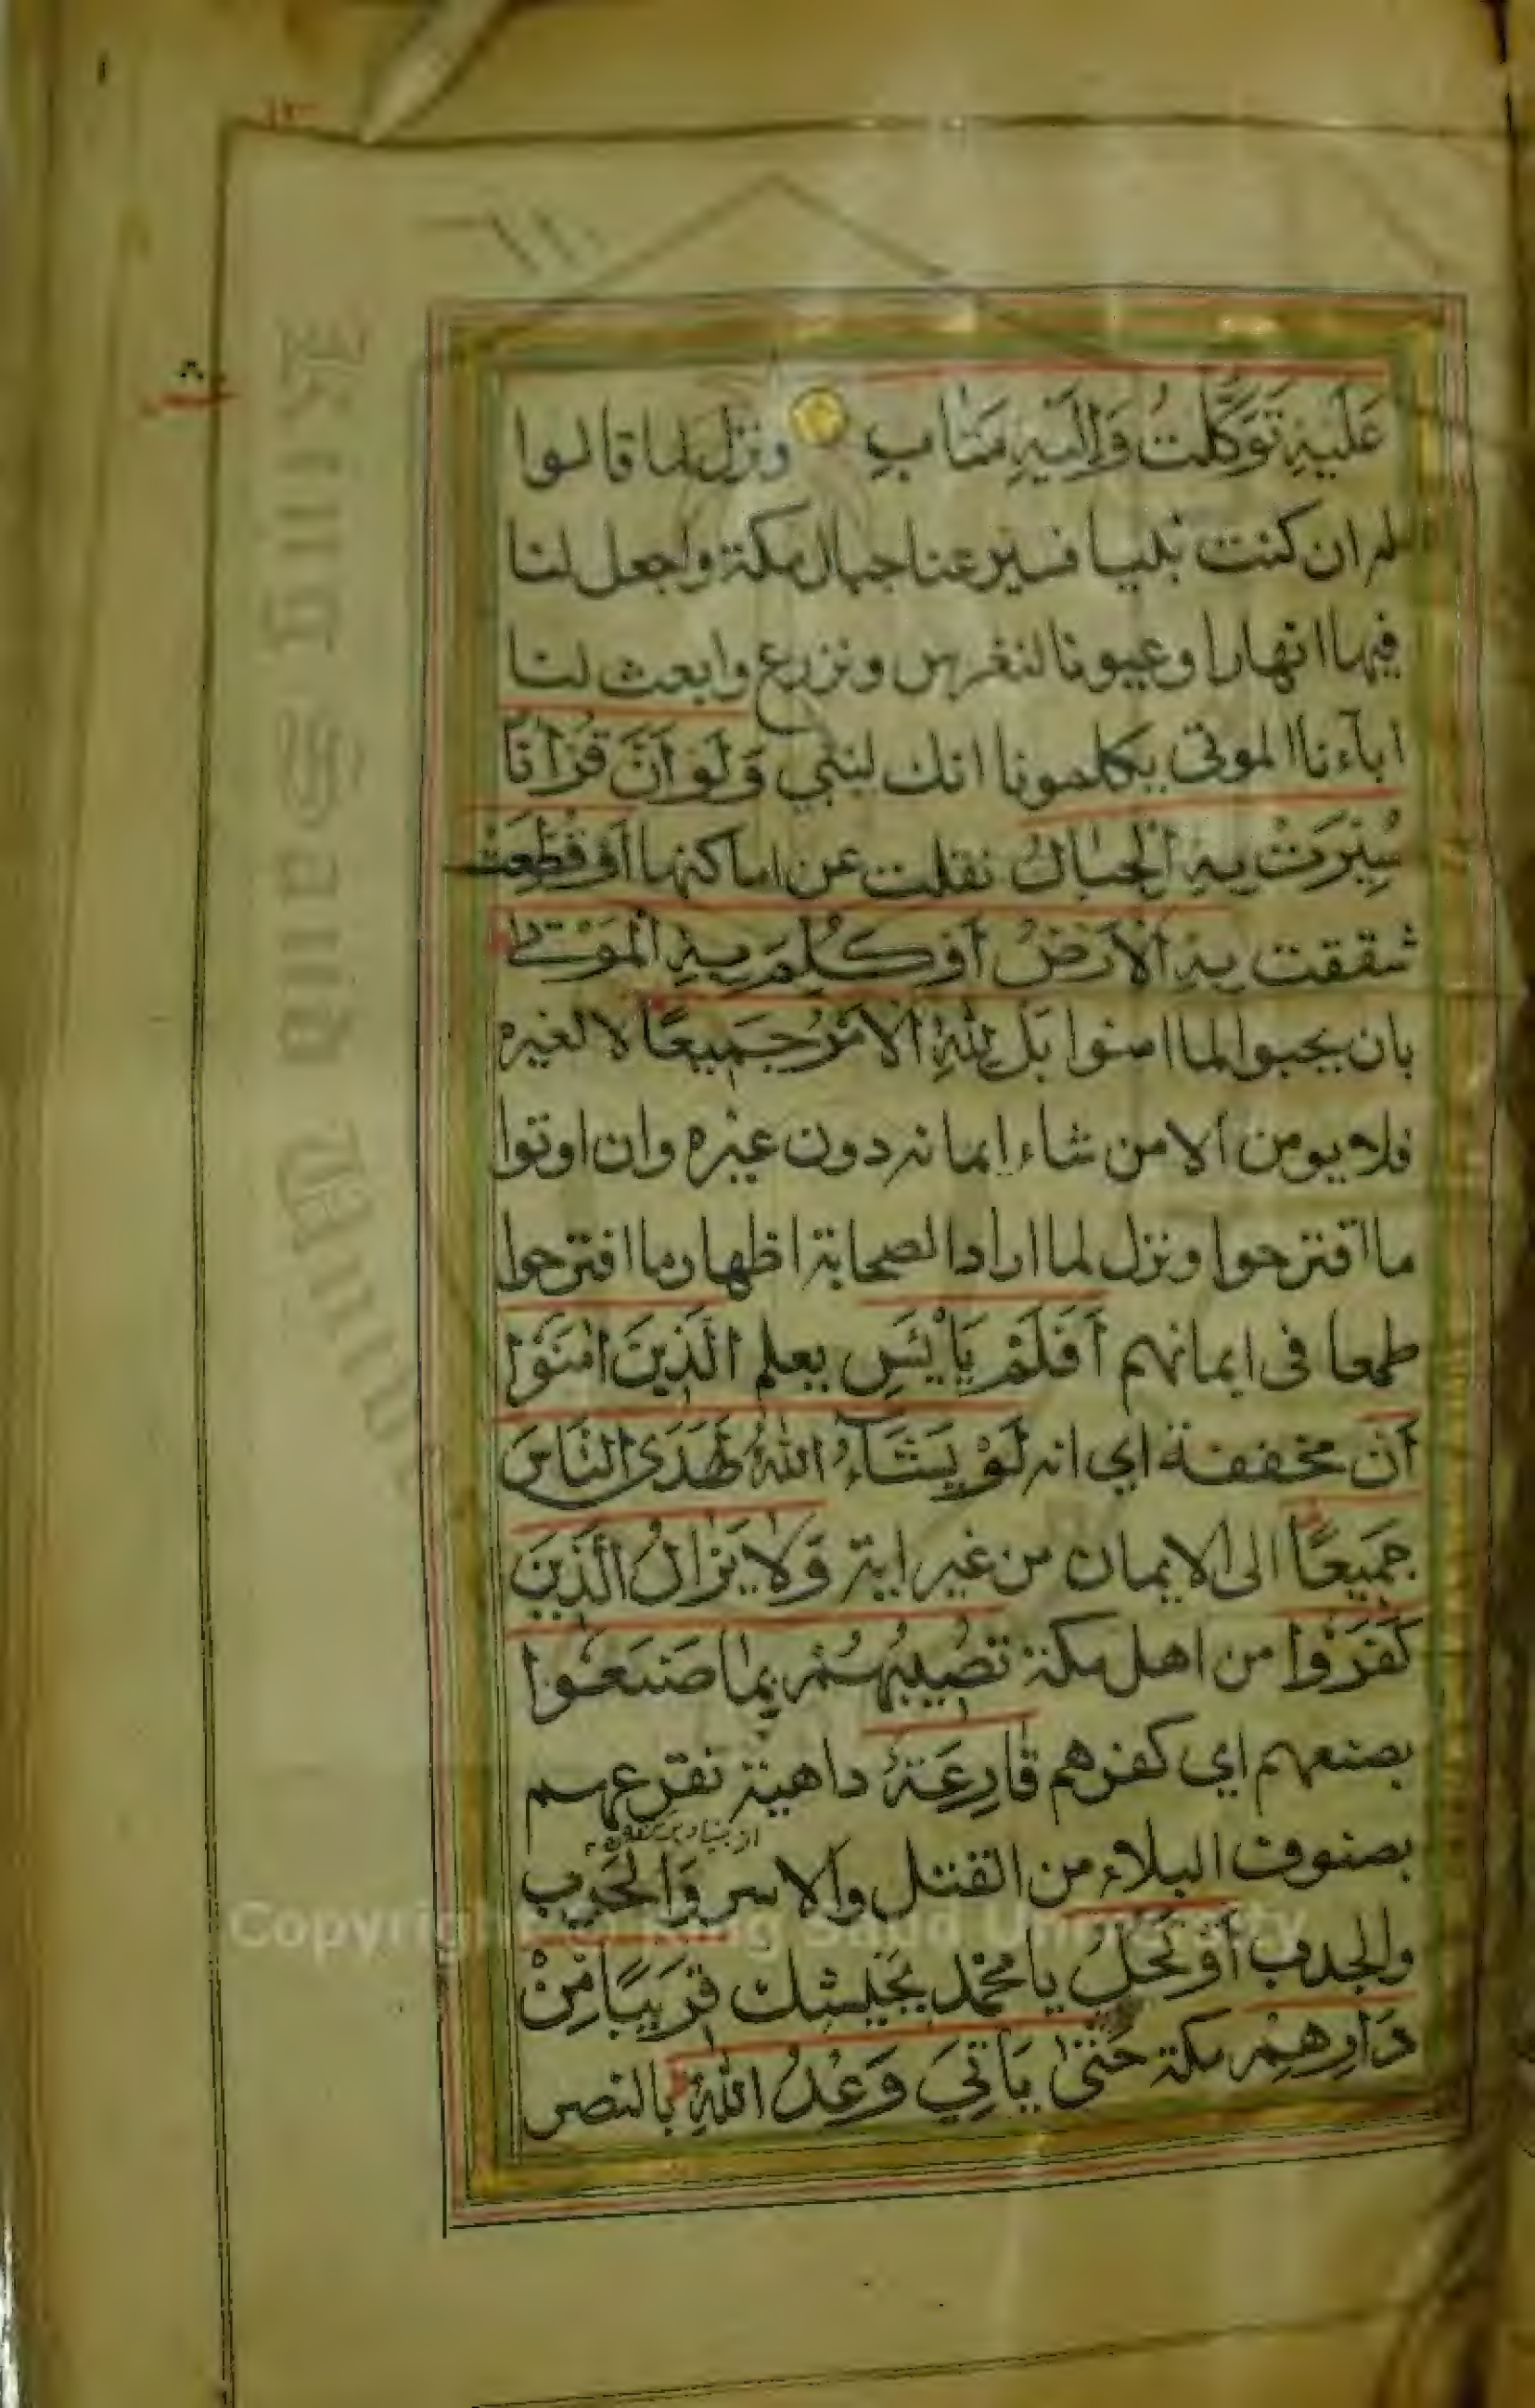 عَلَيْهِ تَوَكَّلْتُ وَاِلَيْهِ مَتَابِ ونزل لما قالوا
له ان كنت نبيا فسير عنا جبال مكة واجعل لنا
فيها انهارا وعيونا لنغرس ونزرع وابعث لنا
ابآءنا الموتى يكلمونا انك لنبي وَلَوْ اَنَّ قُرْاٰنًا
سُيِّرَتْ بِهِ الْجِبَالُ نقلت عن اماكنها اَوْ قُطِّعَتْ
شققت بِهِ الْاَرْضُ اَوْ كُلِّمَ بِهِ الْمَوْتٰى
بان يحيوا لما امنوا بَلْ لِلّٰهِ الْاَمْرُ جَمِيعًا لا لغيره
فلا يومن الا من شاء ايمانه دون غيره وان اوتوا
ما اقترحوا ونزل لما اراد الصحابة اظهار ما اقترحوا
طمعا فى ايمانهم اَفَلَمْ يَايْئَسِ يعلم الَّذِينَ اٰمَنُوا
اَنْ مخففة اي انه لَوْ يَشَآءُ اللّٰهُ لَهَدَى النَّاسَ
جَمِيعًا الى الايمان من غير اية وَلَا يَزَالُ الَّذِينَ
كَفَرُوا من اهل مكة تُصِيبُهُمْ بِمَا صَنَعُوا
بصنعهم اي كفرهم قَارِعَةٌ داهية تقرعهم
بصنوف البلاء من القتل والاسر وَالحرب
والجدب اَوْ تَحُلُّ يا محمد بجيشك قَرِيبًا مِنْ
دَارِهِمْ مكة حَتّٰى يَاْتِيَ وَعْدُ اللّٰهِ بالنصر
Copyright © King Saud University